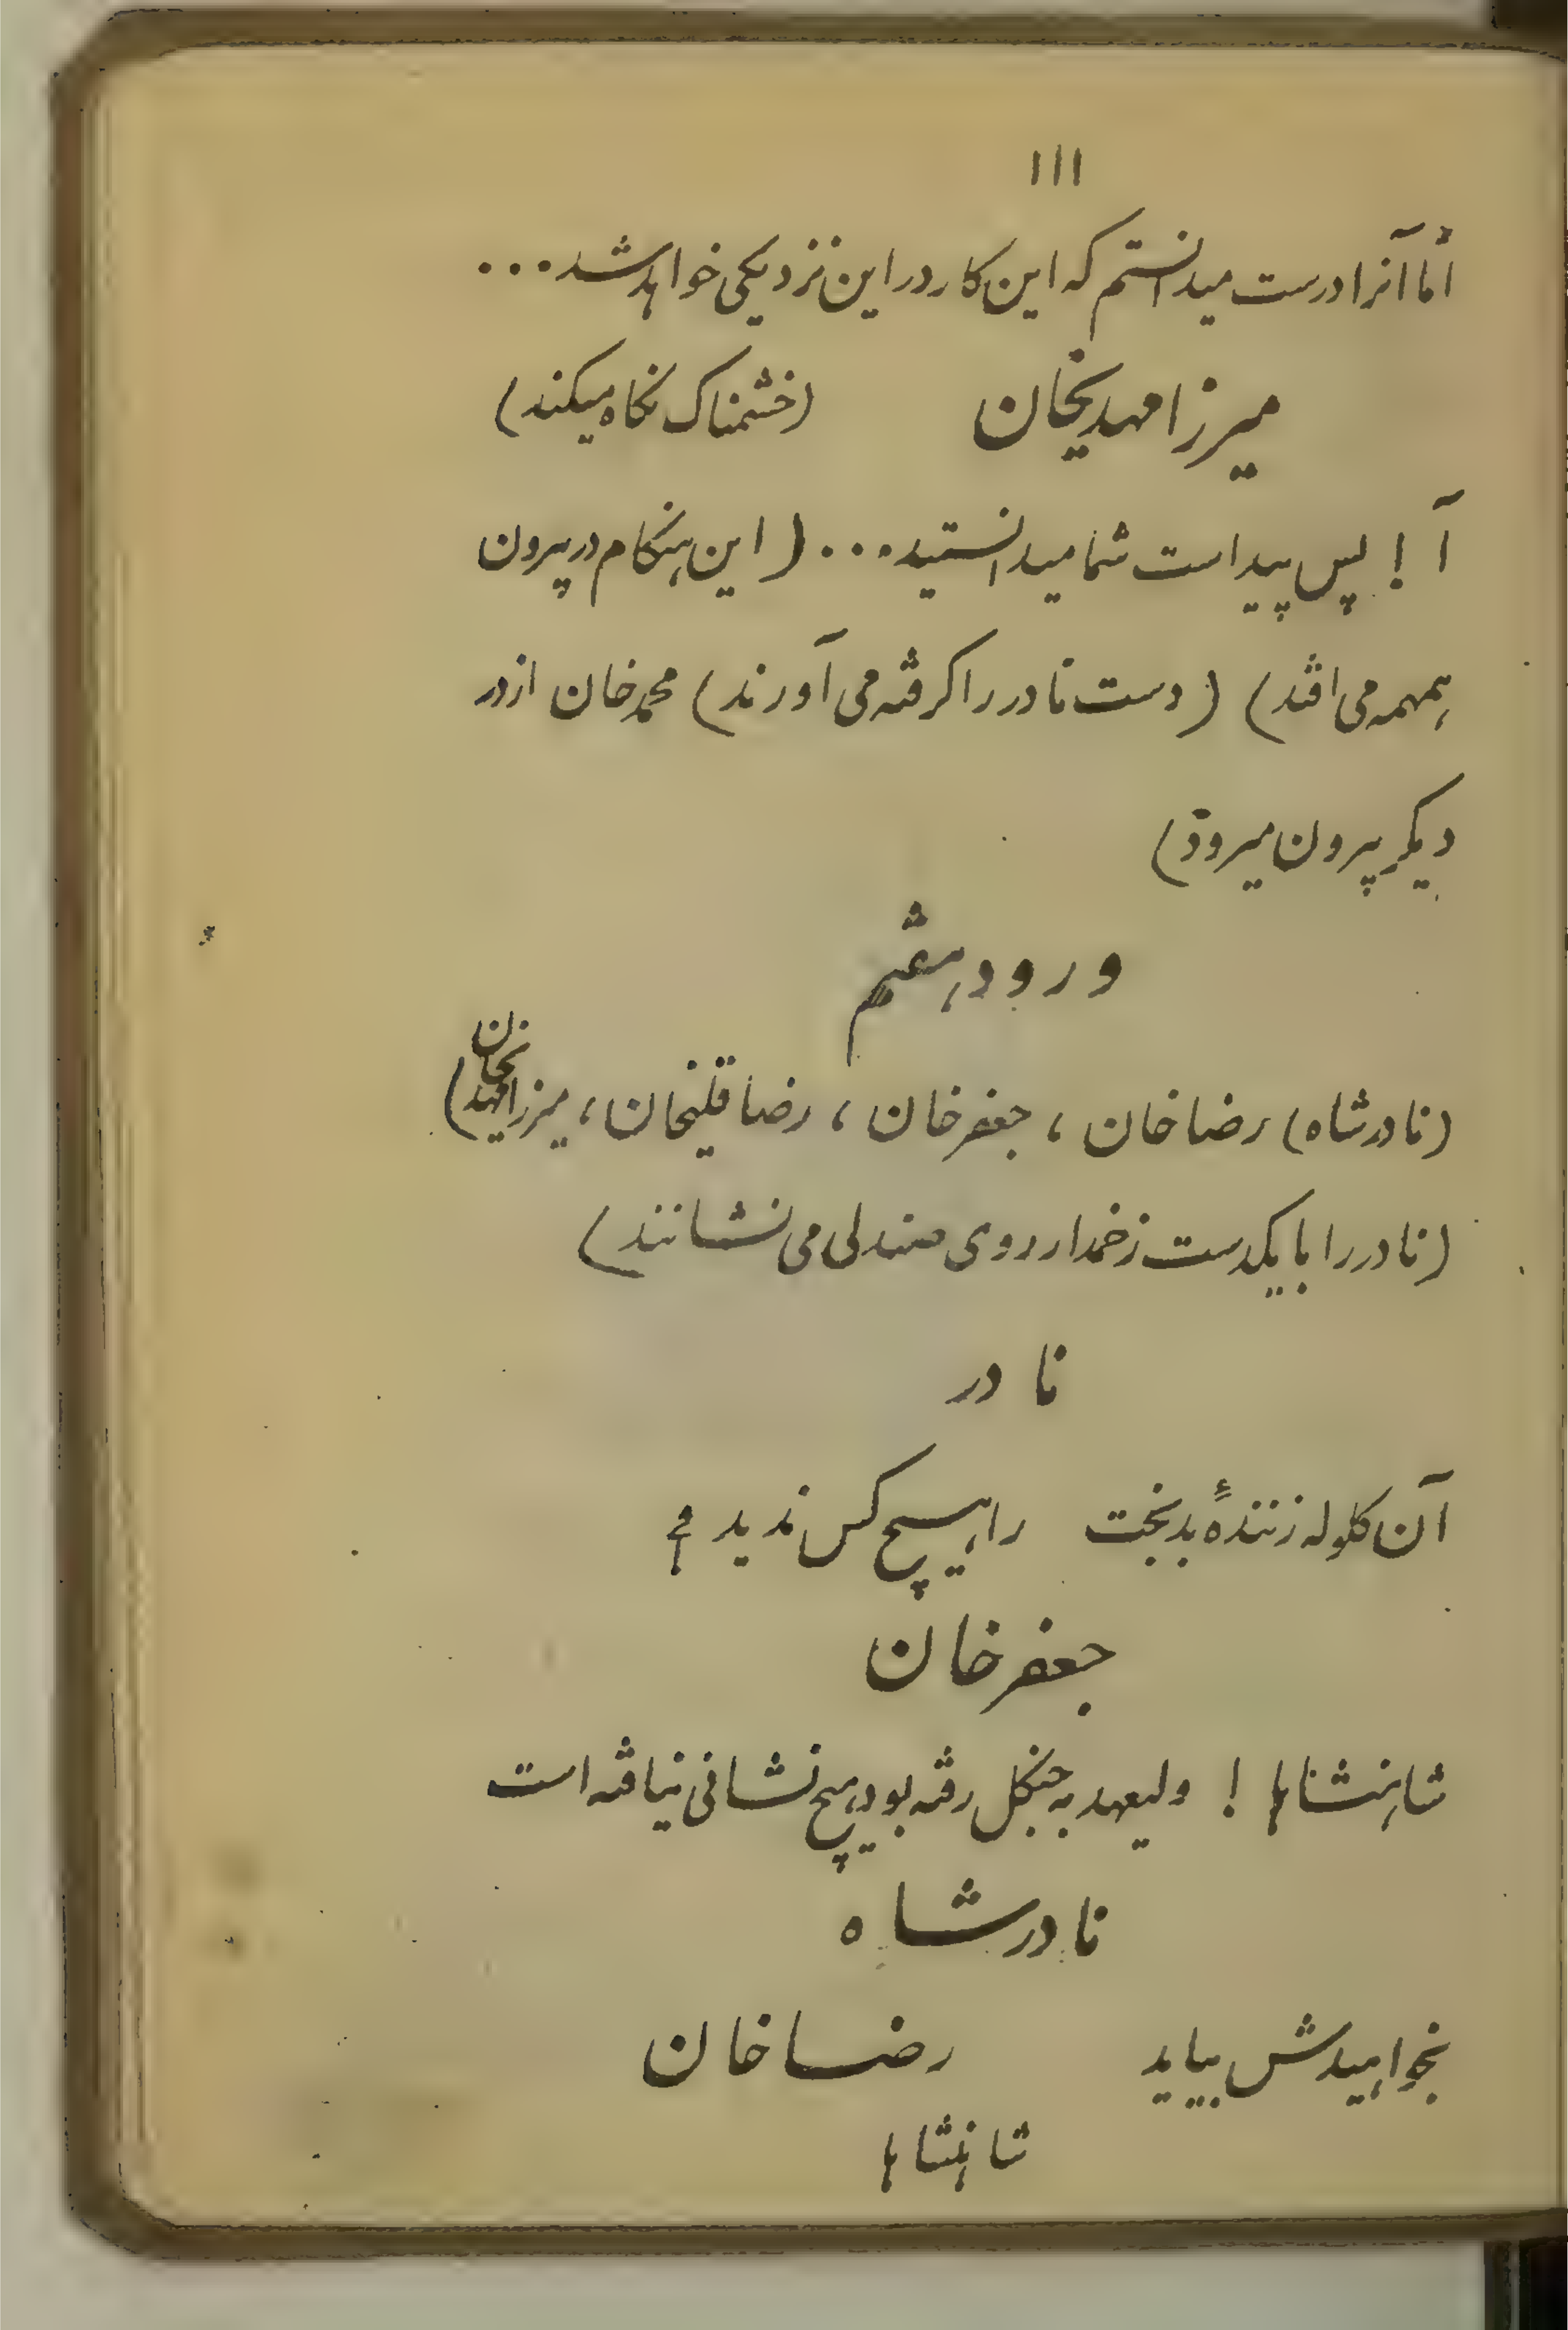 ۱۱۱
امّا آنرا درست میدانستم که این کار در این نزدیکی خواهد شد...
میرزا مهدیخان (خشمناک نکاه میکند)
آ ! پس پیداست شما میدانستید... ( این هنکام در بیرون
همهمه می افتد) (دست نادر را کرفته می آورند) محمد خان از در
دیکر بیرون میرود)
ورود هفتم
(نادر شاه) رضا خان ، جعفر خان ، رضا قلیخان ، میرزا مهدیخان)
(نادر را با یکدست زخمدار روی صندلی می نشانند)
نادر
آن کلوله زنندهٔ بدبخت را هیچ کس ندید ؟
جعفر خان
شاهنشاها ! ولیعهد به جنکل رفته بود هیچ نشانی نیافته است
نادر شاه
بخواهیدش بیاید رضا خان
شاهنشاها